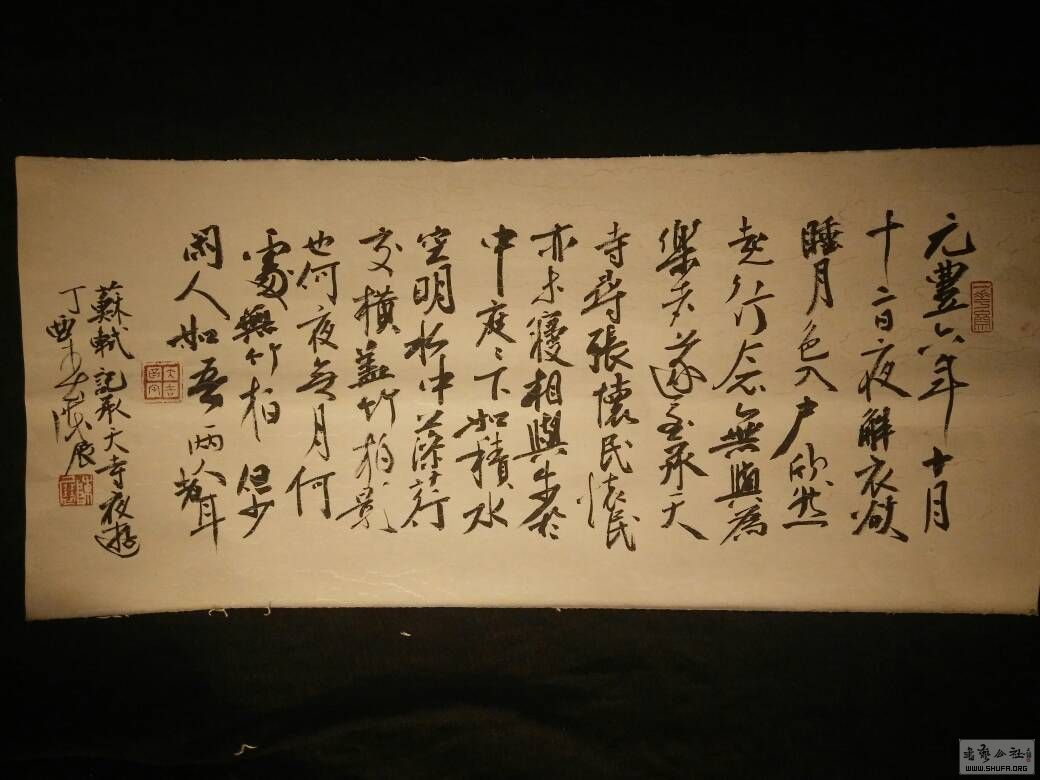 元豐六年十月
十二日夜解衣欲
睡月色入户欣然
起行念無與為
樂者遂至承天
寺尋張懷民懷民
亦未寢相與步於
中庭〻下如積水
空明水中藻荇
交橫蓋竹柏影
也何夜无月何
處無竹柏但少
閑人如吾兩人者耳
蘇軾記承天寺夜遊
丁酉
WWW.SHUFA.ORG